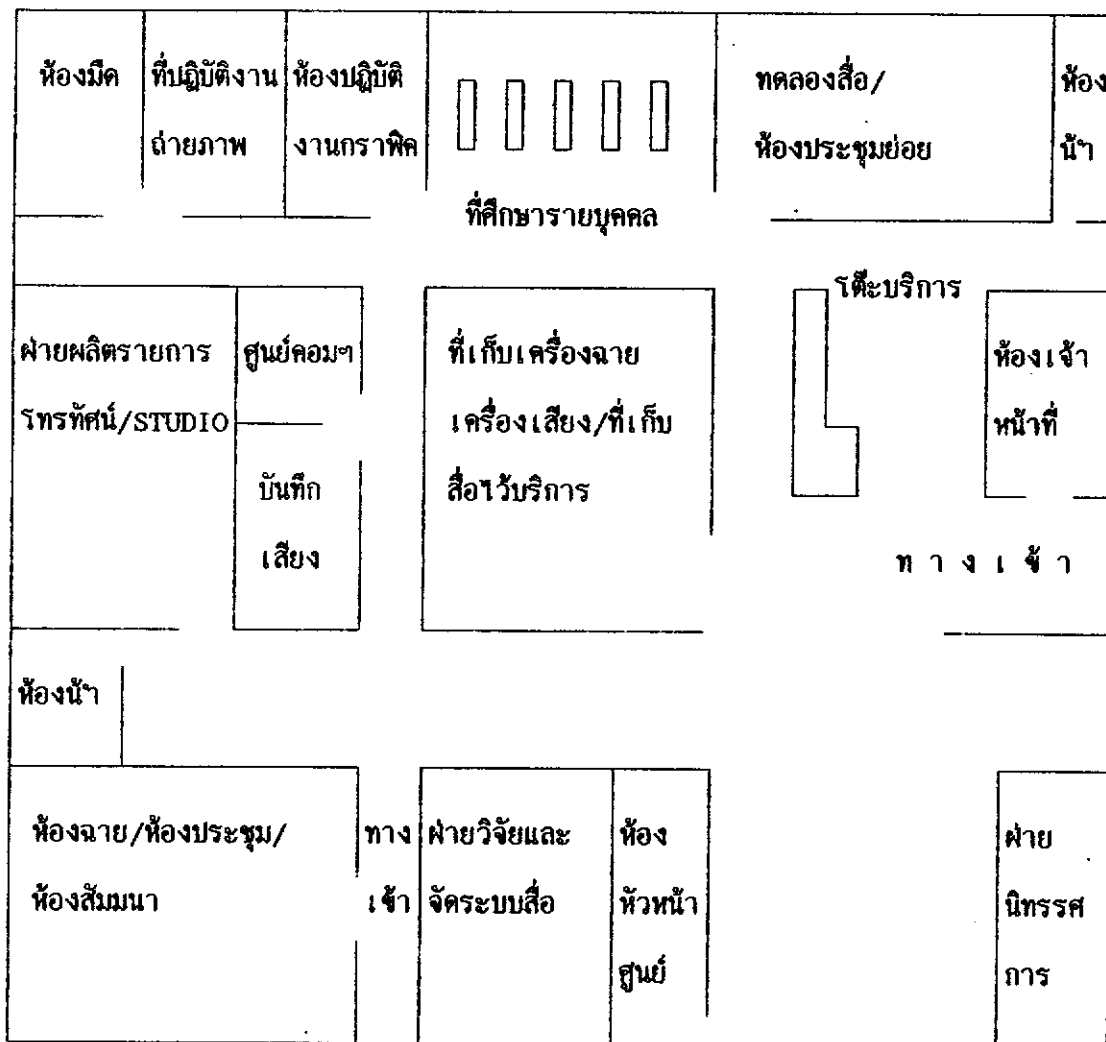 ห้องมืด
ที่ปฏิบัติงาน
ถ่ายภาพ
ห้องปฏิบัติ
งานกราฟิค
ที่ศึกษารายบุคคล
ทดลองสื่อ/
ห้องประชุมย่อย
ห้อง
น้ำ
ฝ่ายผลิตรายการ
โทรทัศน์/STUDIO
ศูนย์คอมฯ
บันทึก
เสียง
ที่เก็บเครื่องฉาย
เครื่องเสียง/ที่เก็บ
สื่อไว้บริการ
โต๊ะบริการ
ห้องเจ้า
หน้าที่
ทางเข้า
ห้องน้ำ
ห้องฉาย/ห้องประชุม/
ห้องสัมมนา
ทาง
เข้า
ฝ่ายวิจัยและ
จัดระบบสื่อ
ห้อง
หัวหน้า
ศูนย์
ฝ่าย
นิทรรศ
การ